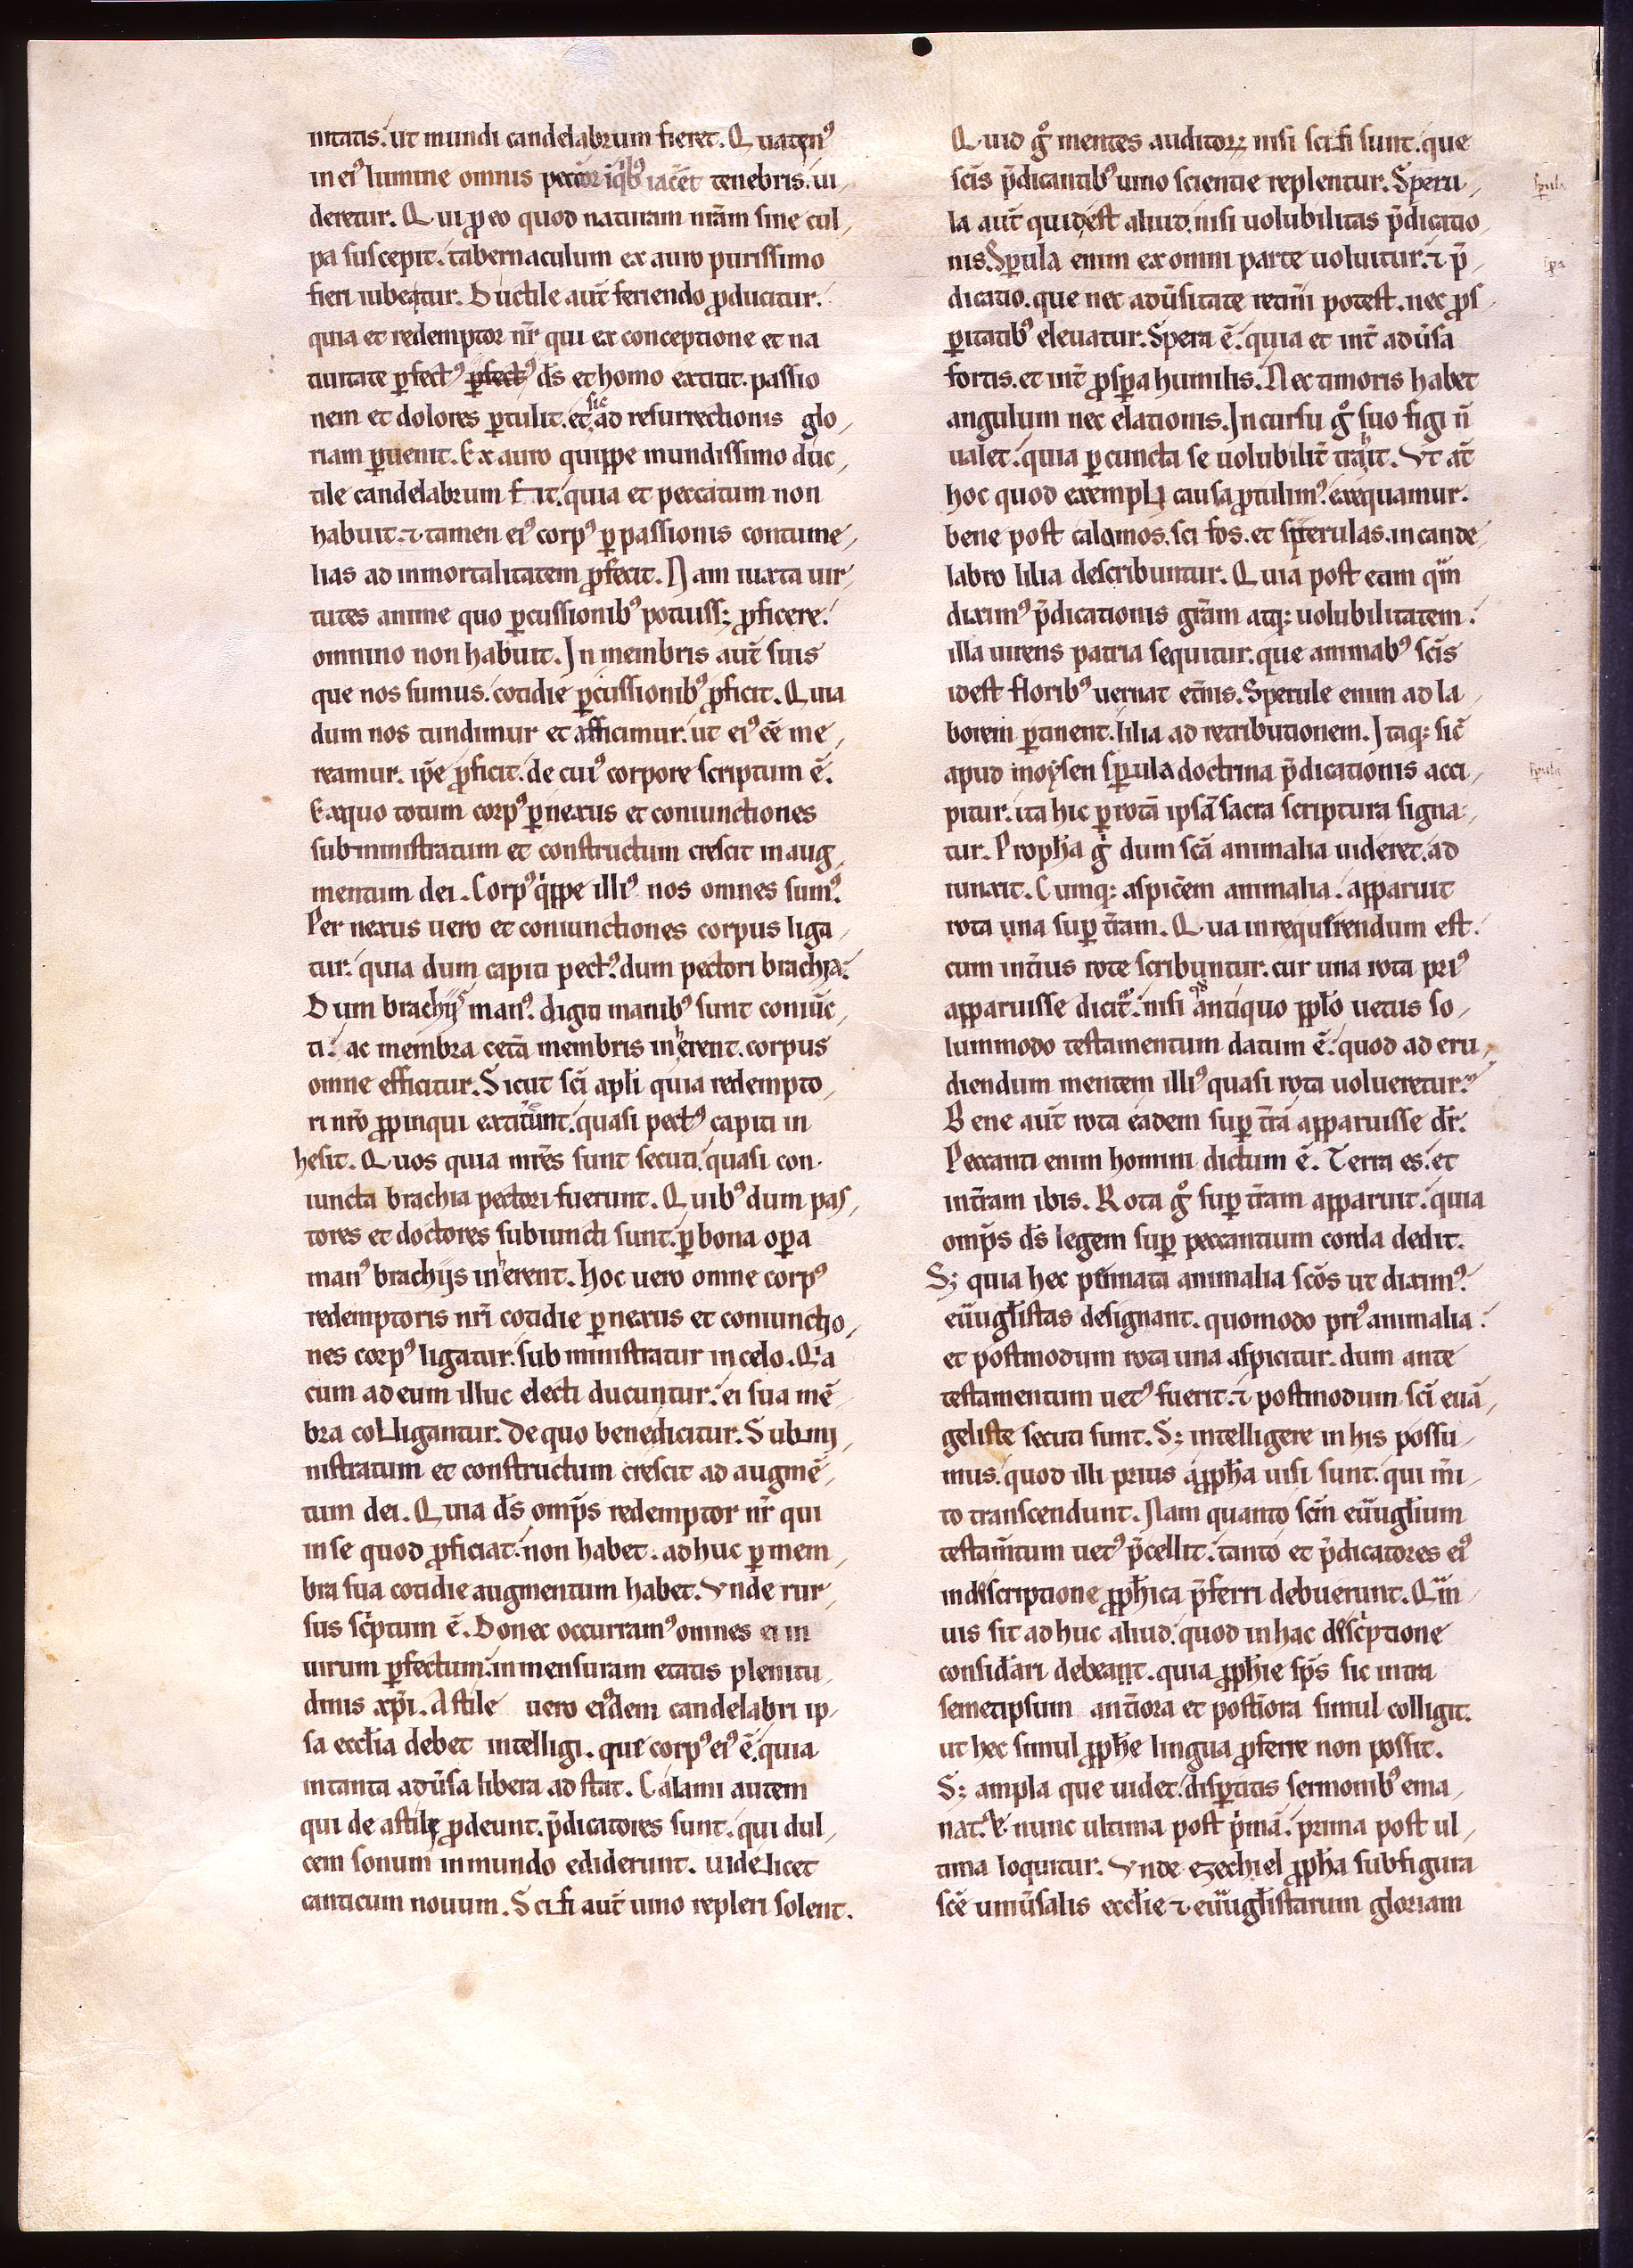 nitatis. ut mundi candelabrum fieret. Quatenꝰ
in eiꝰ lumine omnis pectoꝝ iq̇bꝰ iacēt tenebris. ui
deretur. Qui ꝓ eo quod naturam nr̄am sine cul
pa suscepit. tabernaculum ex auro purissimo
fieri iubeatur. Ductile aut̄ feriendo ꝓducitur.
quia et redemptor nr̄ qui ex conceptione et na
tiuitate ꝑfectꝰ ꝑfectꝰ ds̄ et homo extitit. passio
nem et dolores ꝑtulit. et sic ad resurrectionis glo
riam ꝑuenit. Ex auro quippe mundissimo duc
tile candelabrum fit. quia et peccatum non
habuit. ⁊ tamen eiꝰ corpꝰ ꝑ passionis contume
lias ad inmortalitatem ꝓfecit. Nam iuxta uir
tutes anime quo ꝑcussionibꝰ potuiss; ꝓficere.
omnino non habuit. In membris aut̄ suis
que nos sumus. cotidie ꝑcussionibꝰ ꝓficit. Quia
dum nos tundimur et afficimur. ut eiꝰ eē me
reamur. ip̄e ꝓficit. de cuiꝰ corpore scriptum ē.
Ex quo totum corpꝰ ꝑ nexus et coniunctiones
subministratum et constructum crescit in aug
mentum dei. Corpꝰ q̇ppe illiꝰ nos omnes sumꝰ.
Per nexus uero et coniunctiones corpus liga
tur. quia dum capiti pectꝰ. dum pectori brachia.
Dum brachijs manꝰ. digiti manibꝰ sunt coniūc
ti. ac membra ceta membris inherent. corpus
omne efficitur. Sicut sci apli quia redempto
ri nr̄o ꝓpinqui extiterunt. quasi pectꝰ capiti in
hesit. Quos quia mr̄es sunt secuti. quasi con
iuncta brachia pectori fuerunt. Quibꝰ dum pas
tores et doctores subiuncti sunt. ꝑ bona oꝑa
manꝰ brachijs inherent. hoc uero omne corpꝰ
redemptoris nr̄i cotidie ꝑ nexus et coniunctio
nes corpꝰ ligatur. sub ministratur in celo. Q̇a
cum ad eum illuc electi ducuntur. ei sua mē
bra colligantur. de quo bene dicitur. Submi
nistratum et constructum crescit ad augmē
tum dei. Quia ds̄ omp̄s redemptor nr̄ qui
in se quod ꝓficiat. non habet. ad huc ꝑ mem
bra sua cotidie augmentum habet. Vnde rur
sus scͥptum ē. Donec occurramꝰ omnes ei in
uirum ꝑfectum. in mensuram etatis plenitu
dinis xp̄i. Astile uero eiꝰdem candelabri ip
sa eccl̄ia debet intelligi. que corpꝰ eiꝰ ē. quia
in tanta adūsa libera ad stat. Calami autem
qui de astile ꝓdeunt. p̄dicatores sunt. qui dul
cem sonum in mundo ediderunt. uidelicet
canticum nouum. Scifi aut̄ uino repleri solent.
Quid gͦ mentes auditoꝝ nisi scifi sunt. que
scis p̄dicantibꝰ uino scientie replentur. Speru
la aut̄ quid est aliud. nisi uolubilitas p̄dicatio
nis. Sꝑula enim ex omni parte uoluitur. ⁊ p̄
dicatio. que nec adūsitate retin̄i potest. nec ꝓs
ꝑitatibꝰ eleuatur. Spera ē. quia et int̄ adūsa
fortis. et int̄ ꝓsꝑa humilis. Nec timoris habet
angulum nec elationis. In cursu gͦ suo figi n̄
ualet. quia ꝑ cuncta se uolubilit̄ trahit. Vt at̄
hoc quod exempli causa ꝓtulimꝰ. exequamur.
bene post calamos. scifos. et sperulas. in cande
labro lilia describuntur. Quia post eam qͣm
diximꝰ p̄dicationis gr̄am atq; uolubilitatem.
illa uirens patria sequitur. que animabꝰ scis
id est floribꝰ uernat et̄nis. Sperule enim ad la
borem ꝑtinent. lilia ad retributionem. Itaq; sic̄
apud moysen sꝑula doctrina p̄dicationis acci
pitur. ita hic ꝑ rotā ipsā sacra scriptura signa
tur. Propha gͦ dum scā animalia uideret. ad
iunxit. Cumq; aspicēem animalia. apparuit
rota una suꝑ t̄ram. Qua in re querendum est.
cum int̄ius rote scribuntur. cur una rota priꝰ
apparuisse dicit᷑. nisi qd antiquo ppl̄o uetus so
lummodo testamentum datum ē. quod ad eru
diendum mentem illiꝰ quasi rota uolueretur.
Bene aut̄ rota eadem suꝑ t̄rā apparuisse dr̄.
Peccanti enim homini dictum ē. Terra es. et
in t̄ram ibis. Rota gͦ suꝑ t̄ram apparuit. quia
omp̄s ds̄ legem suꝑ peccantium corda dedit.
S; quia hec pennata animalia scōs ut diximꝰ.
euͣugl̄istas designant. quomodo priꝰ animalia.
et postmodum rota una aspicitur. dum ante
testamentum uetꝰ fuerit. ⁊ postmodum sci euā
geliste secuti sunt. S; intelligere in his possu
mus. quod illi prius a ꝓpha uisi sunt. qui m̄i
to transcendunt. Nam quanto scm̄ euͣugl̄ium
testam̄tum uetꝰ p̄cellit. tanto et p̄dicatores eiꝰ
in descriptione ꝓphica p̄ferri debuerunt. Qͣm
uis sit ad huc aliud. quod in hac descͥptione
considari debeant. quia ꝓphie sp̄s sic intra
semetipsum ant̄iora et post̄iora simul colligit.
ut hec simul ꝓphe lingua ꝓferre non possit.
S; ampla que uidet. disꝑtitis sermonibꝰ ema
nat. & nunc ultima post pͥmā. prima post ul
tima loquitur. Vnde ezechiel ꝓpha sub figura
sce uniūsalis eccl̄ie ⁊ euͣugl̄istarum gloriam
sꝑula
sꝑa
sꝑula